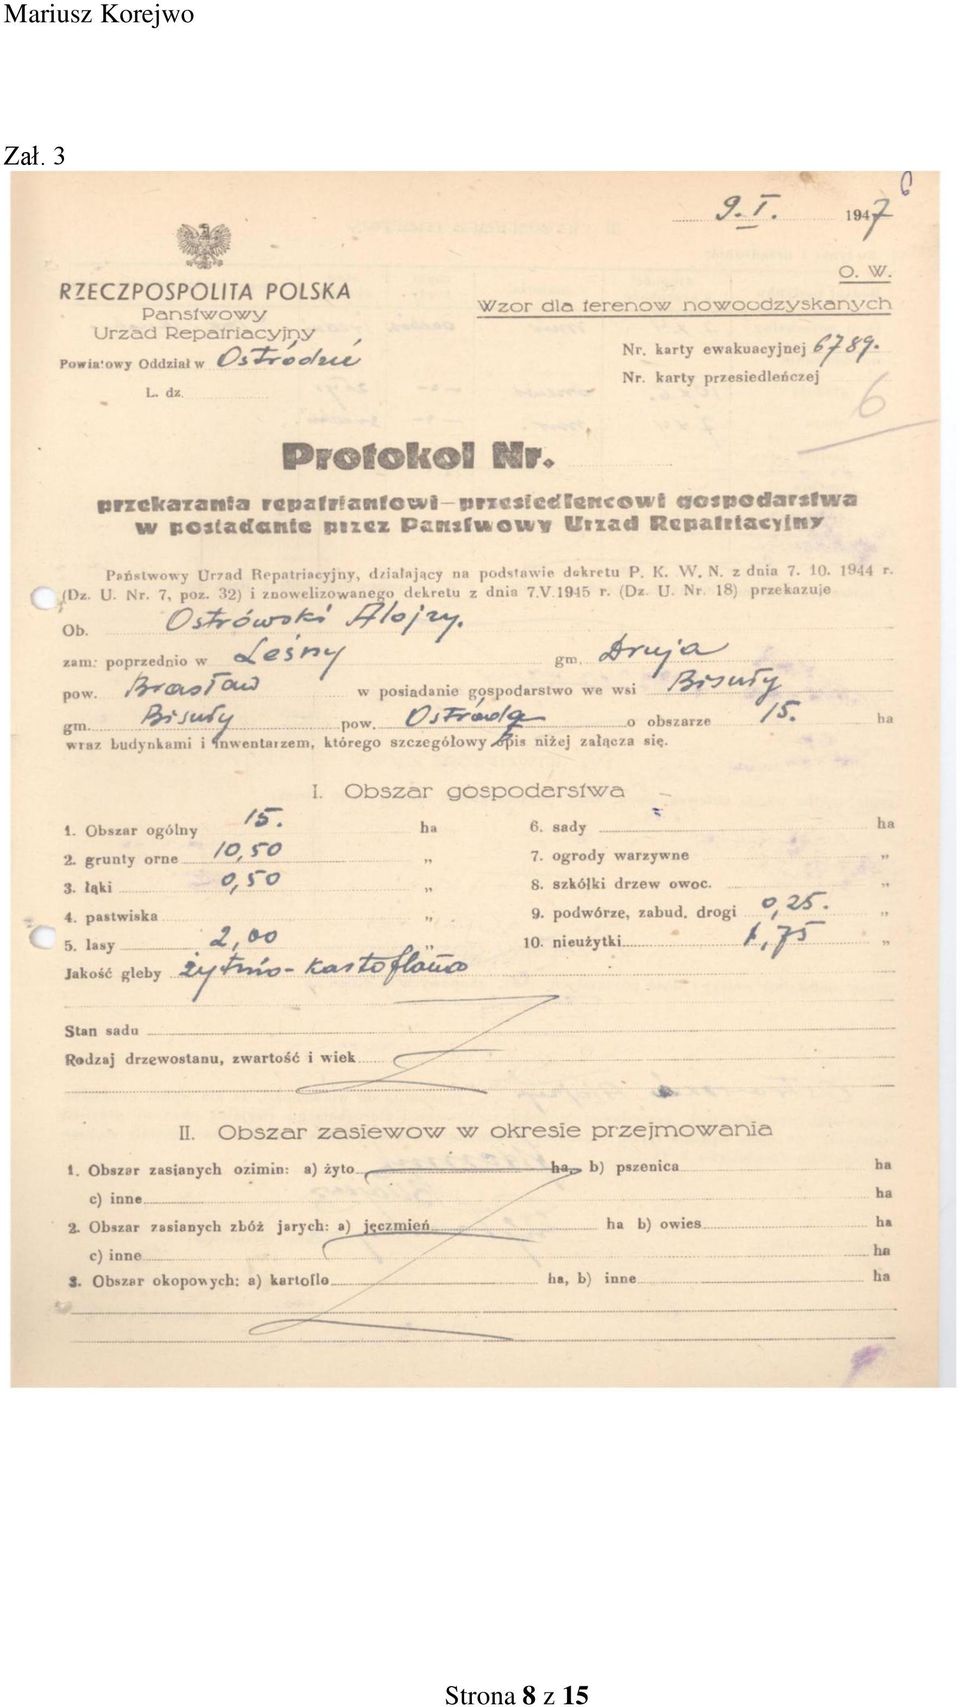 Mariusz Korejwo
Zał. 3
6
9.I. 1947
O. W.
RZECZPOSPOLITA POLSKA
Państwowy
Urząd Repatriacyjny
Wzor dla terenow nowoodzyskanych
Powiatowy Oddział w Ostródzie
Nr. karty ewakuacyjnej 6789.
L. dz.
Nr. karty przesiedleńczej
9
Protokol Nr.
przekazania repatriantowi-przesiedlencowi gospodarstwa
w posiadanie przez Panstwowy Urzad Repatriacyjny
Państwowy Urząd Repatriacyjny, działający na podstawie dekretu P. K. W. N. z dnia 7. 10. 1944 r.
(Dz. U. Nr. 7, poz. 32) i znowelizowanego dekretu z dnia 7.V.1945 r. (Dz. U. Nr. 18) przekazuje
Ob. Ostrówski Alojzy.
zam. poprzednio w Leśny gm. Druja
pow. Brasław w posiadanie gospodarstwo we wsi Bisuty
gm. Bisuty pow. Ostróda o obszarze 15. ha
wraz budynkami i inwentarzem, którego szczegółowy opis niżej załącza się.
I. Obszar gospodarstwa
1. Obszar ogólny 15. ha
2. grunty orne 10,50 „
3. łąki 0,50 „
4. pastwiska „
5. lasy 2,00 „
6. sady ha
7. ogrody warzywne „
8. szkółki drzew owoc. „
9. podwórze, zabud. drogi 0,25. „
10. nieużytki 1,75 „
Jakość gleby żytnio-kartoflana
Stan sadu
Rodzaj drzewostanu, zwartość i wiek
II. Obszar zasiewow w okresie przejmowania
1. Obszar zasianych ozimin: a) żyto ha, b) pszenica ha
c) inne ha
2. Obszar zasianych zbóż jarych: a) jęczmień ha b) owies ha
c) inne ha
3. Obszar okopowych: a) kartofle ha, b) inne ha
Strona 8 z 15